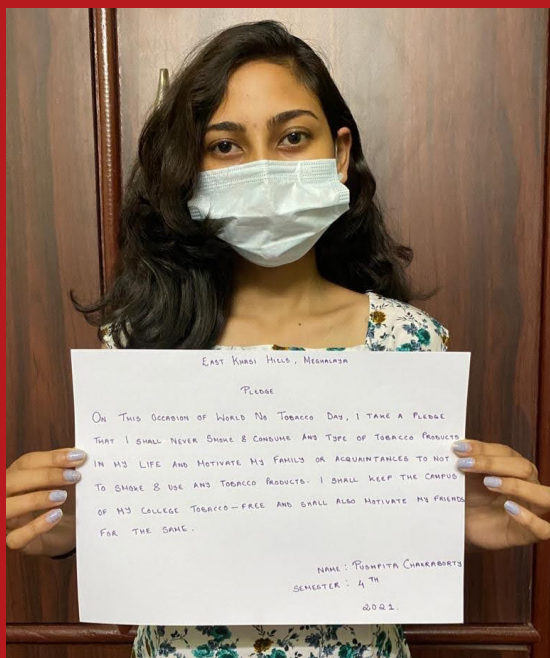 EAST KHASI HILLS, MEGHALAYA
PLEDGE
ON THIS OCCASION OF WORLD NO TOBACCO DAY, I TAKE A PLEDGE
THAT I SHALL NEVER SMOKE & CONSUME ANY TYPE OF TOBACCO PRODUCTS
IN MY LIFE AND MOTIVATE MY FAMILY OR ACQUAINTANCES TO NOT
TO SMOKE & USE ANY TOBACCO PRODUCTS. I SHALL KEEP THE CAMPUS
OF MY COLLEGE TOBACCO-FREE AND SHALL ALSO MOTIVATE MY FRIENDS
FOR THE SAME.
NAME: PUSHPITA CHAKRABORTY
SEMESTER: 4TH
2021.